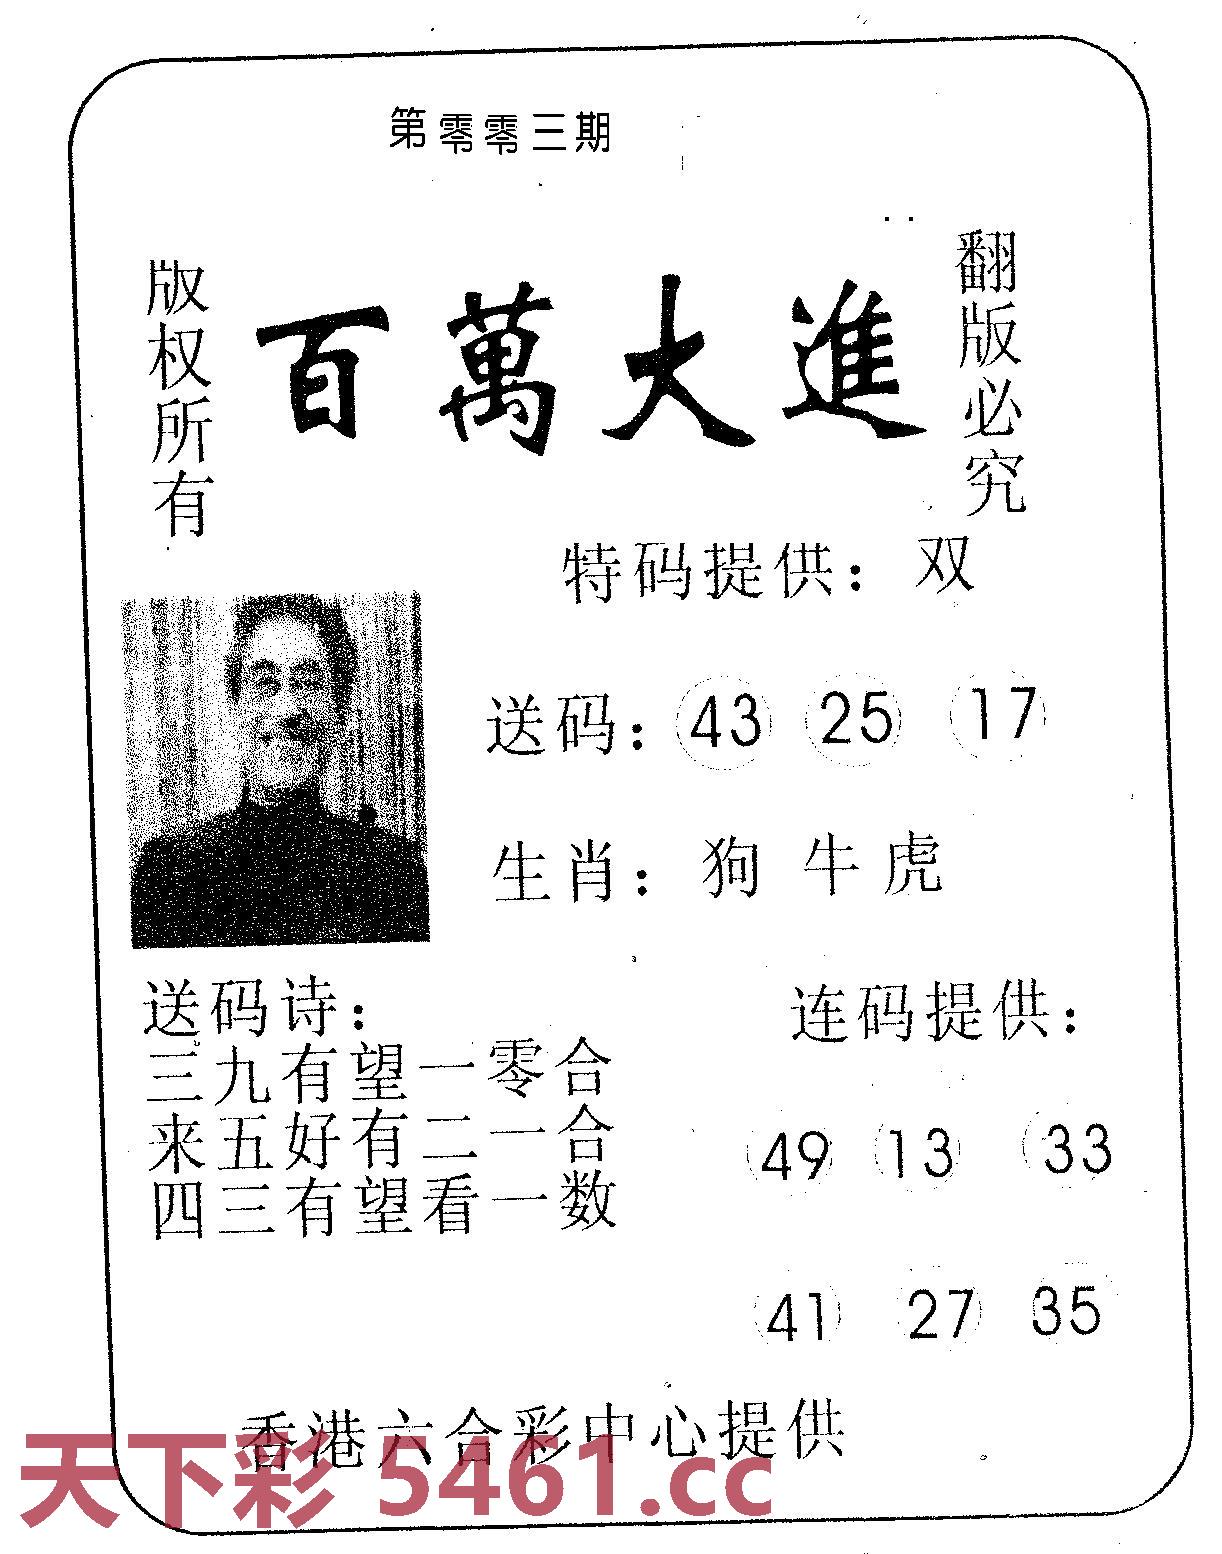 第零零三期
版权所有
百萬大進
翻版必究
特码提供：双
送码：43 25 17
生肖：狗 牛 虎
送码诗：
三九有望一零合
来五好有二一合
四三有望看一数
连码提供：
49 13 33
41 27 35
香港六合彩中心提供
天下彩 5461.cc